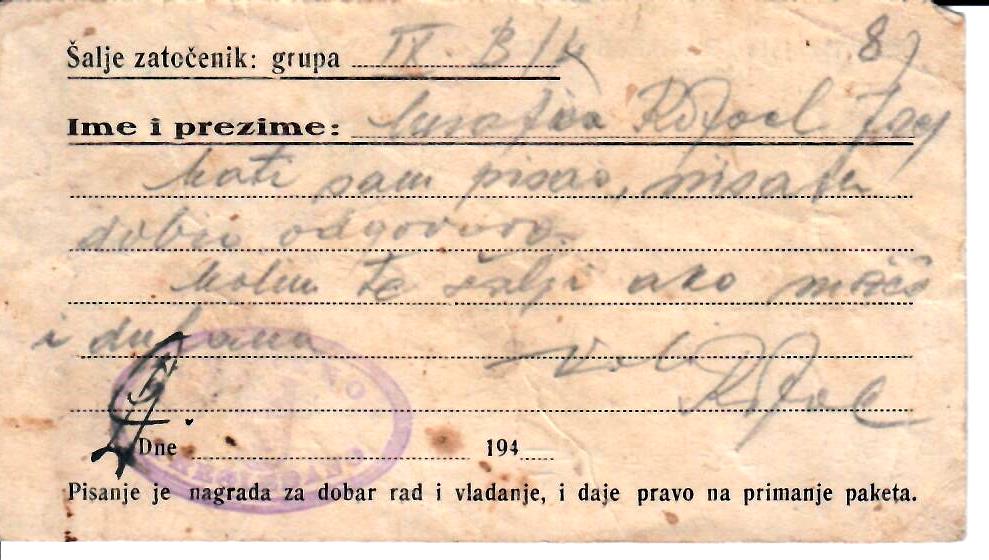 Šalje zatočenik: grupa IX B/4
8
Ime i prezime: Musafia Rafael
Kati sam pisao, nisam
dobio odgovora
Molim te šalji ako možeš
i duhana
Voli
Rafael
Dne 194
Pisanje je nagrada za dobar rad i vladanje, i daje pravo na primanje paketa.